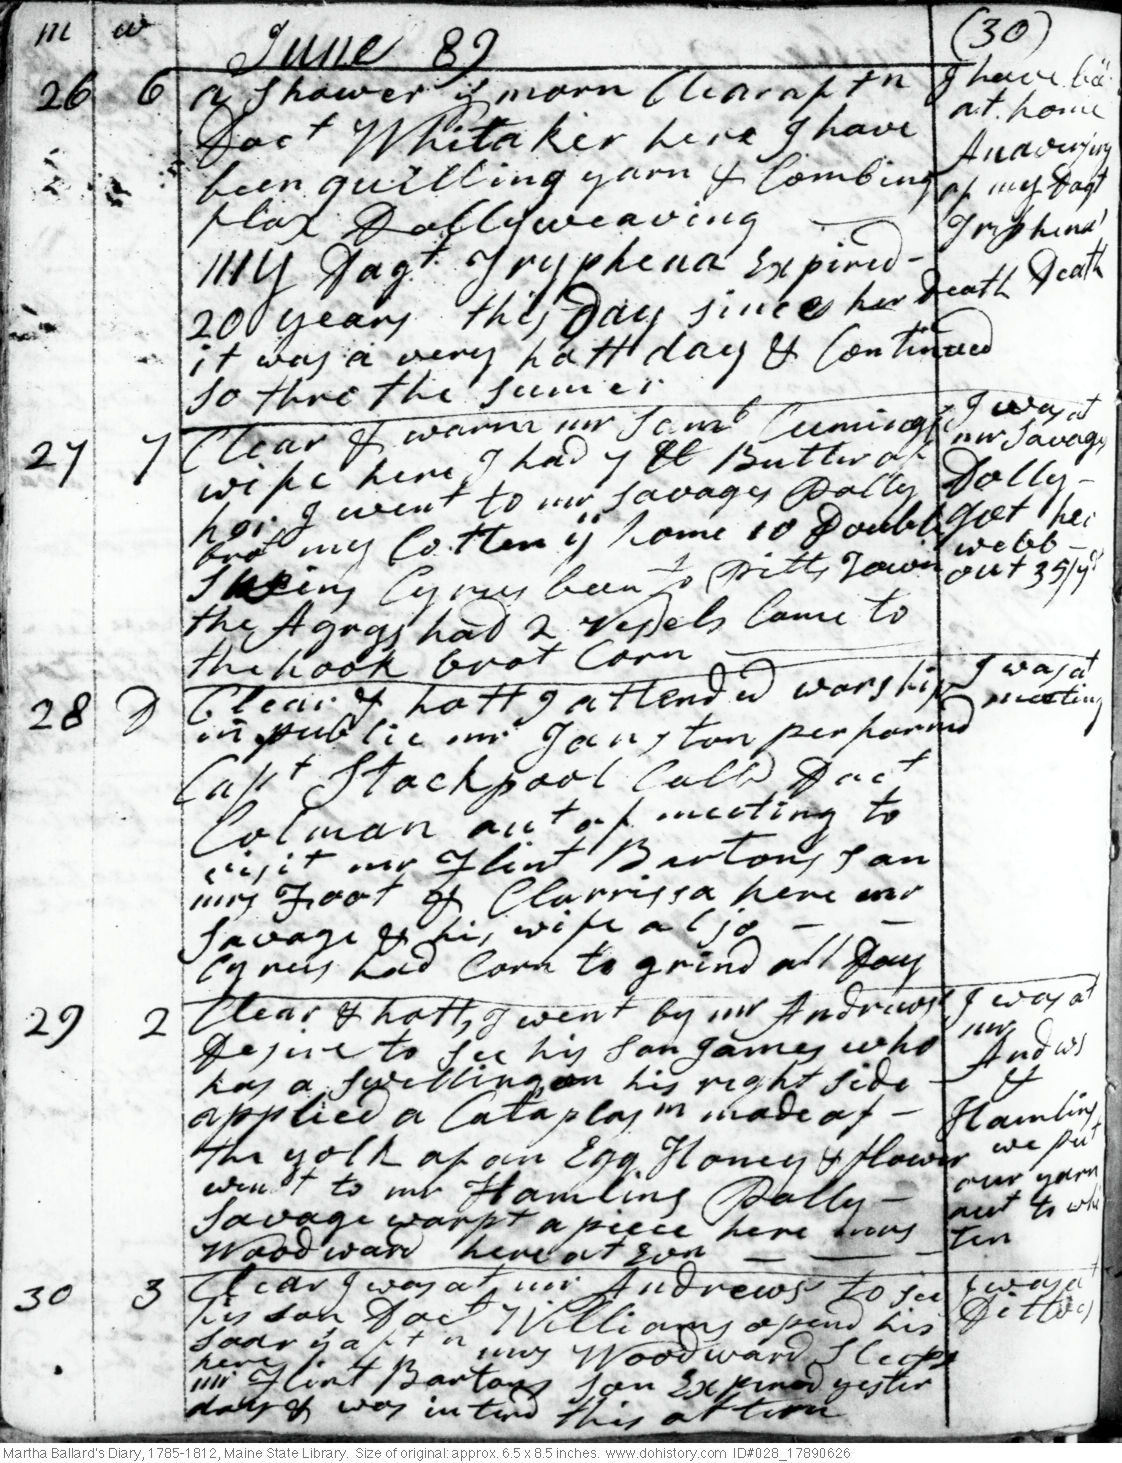 m w June 89 (30)
26 6 a shower is morn Clear aftn I have be
Doct Whitaker here I have at home
been quilling yarn & Combing Anaversary
flax Dolly weaving of my Dagt
My Dagt Tryphena Expired Tryphena
20 years this Day since her Death Death
it was a very hott day & Continued
so thro the sumer
27 7 Clear & warm mr Saml Cumings I was at
wife here I had 7 lb Butter of mr Savages
her I went to mr Savages Dolly Dolly
brot my Cotten y home 10 Doubl got her
Skeins Cyrus been to Pitts Town webb
the Agrgs had 2 vessels Came to out 35 yd
the hook brot Corn
28 D Clear & hott I attended worship I was at
in publick mr Jangston performd meeting
Capt Stackpool Calld Doct
Colman out of meeting to
visit mr Flint Bartons son
mrs Foot & Clarrissa here mr
Savage & his wife allso
Cyrus had Corn to grind all Day
29 2 Clear & hott, I went by mr Andrews I was at
Desire to see his son James who mr
has a swelling on his right side Andws
applied a Cataplasm made of &
the yolk of an Egg Honey & flower Hamlins
went to mr Hamlins Dolly we put
Savage warpt a piece here mrs our yarn
Woodward here at Evn out to whi
ten
30 3 Clear I was at mr Andrews to see I was at
his son Doct Williams opend his Dittoes
soar is aftn mrs Woodward Sleeps
here
mr Flint Bartons son Expired yester
day & was interd this aftern
Martha Ballard's Diary, 1785-1812, Maine State Library. Size of original: approx. 6.5 x 8.5 inches. www.dohistory.com ID#028_17890626